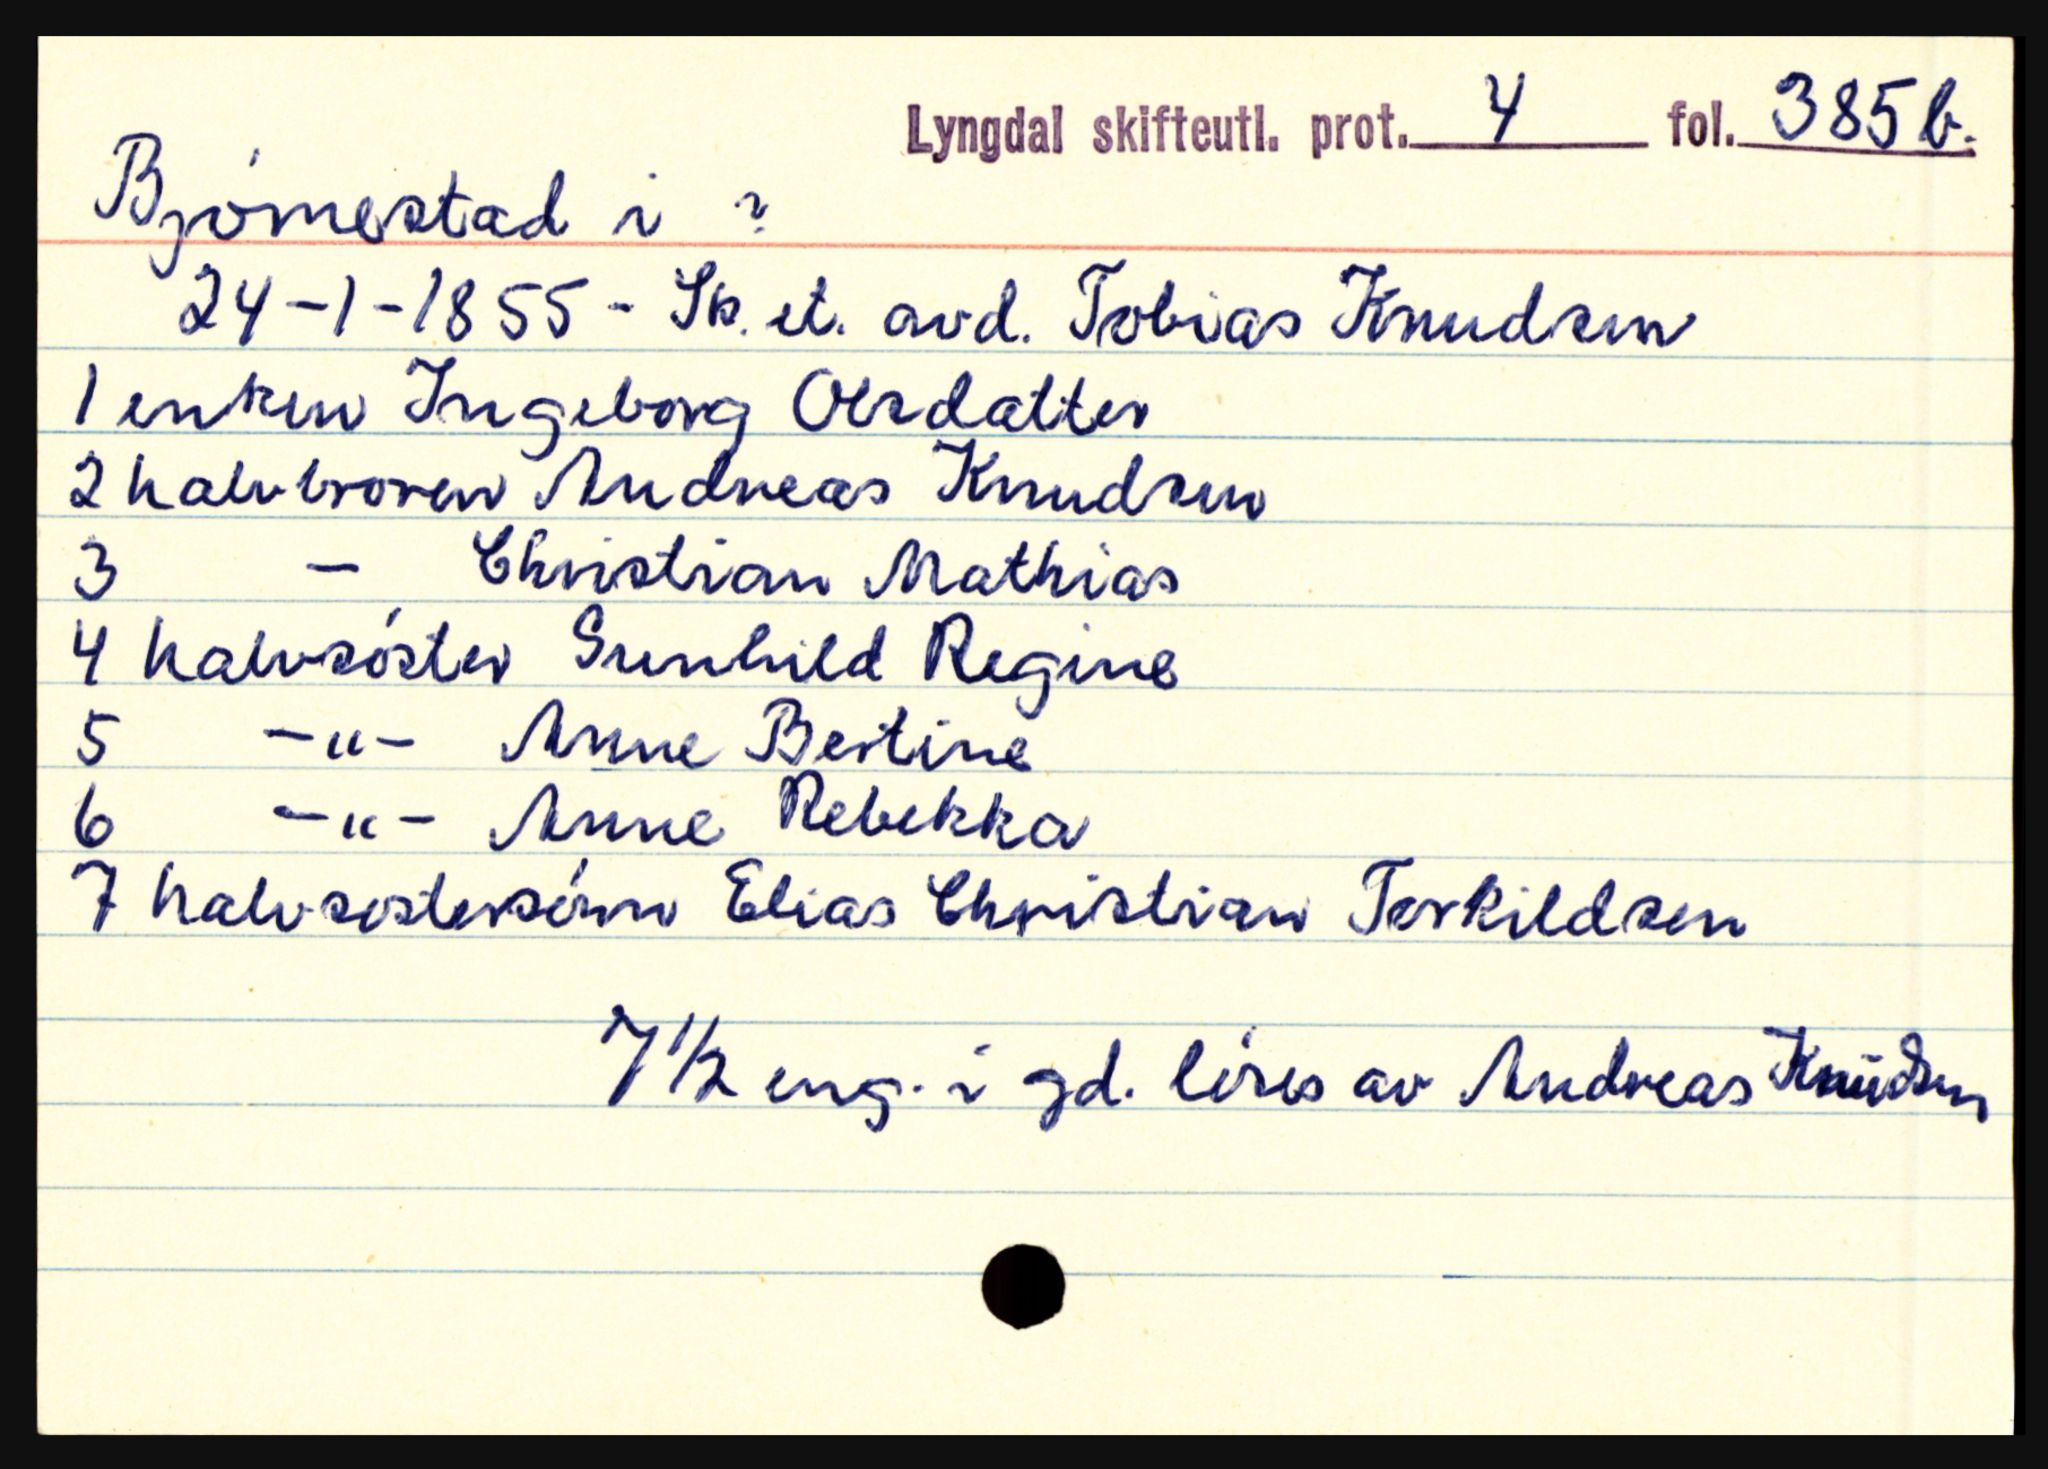 Lyngdal skifteutl. prot. 4 fol. 385 b.
Bjórnestad i ?
24-1-1855 - Sk. et. avd. Tobias Knudsen
1 enken Ingeborg Olsdatter
2 halvbroren Andreas Knudsen
3 - Christian Mathias
4 halvsóster Gunhild Regine
5 -"- Anne Bertine
6 -"- Anne Rebekka
7 halvsóstersónn Elias Christian Torkildsen
7 1/2 eng. i gd. lóses av Andreas Knudsen